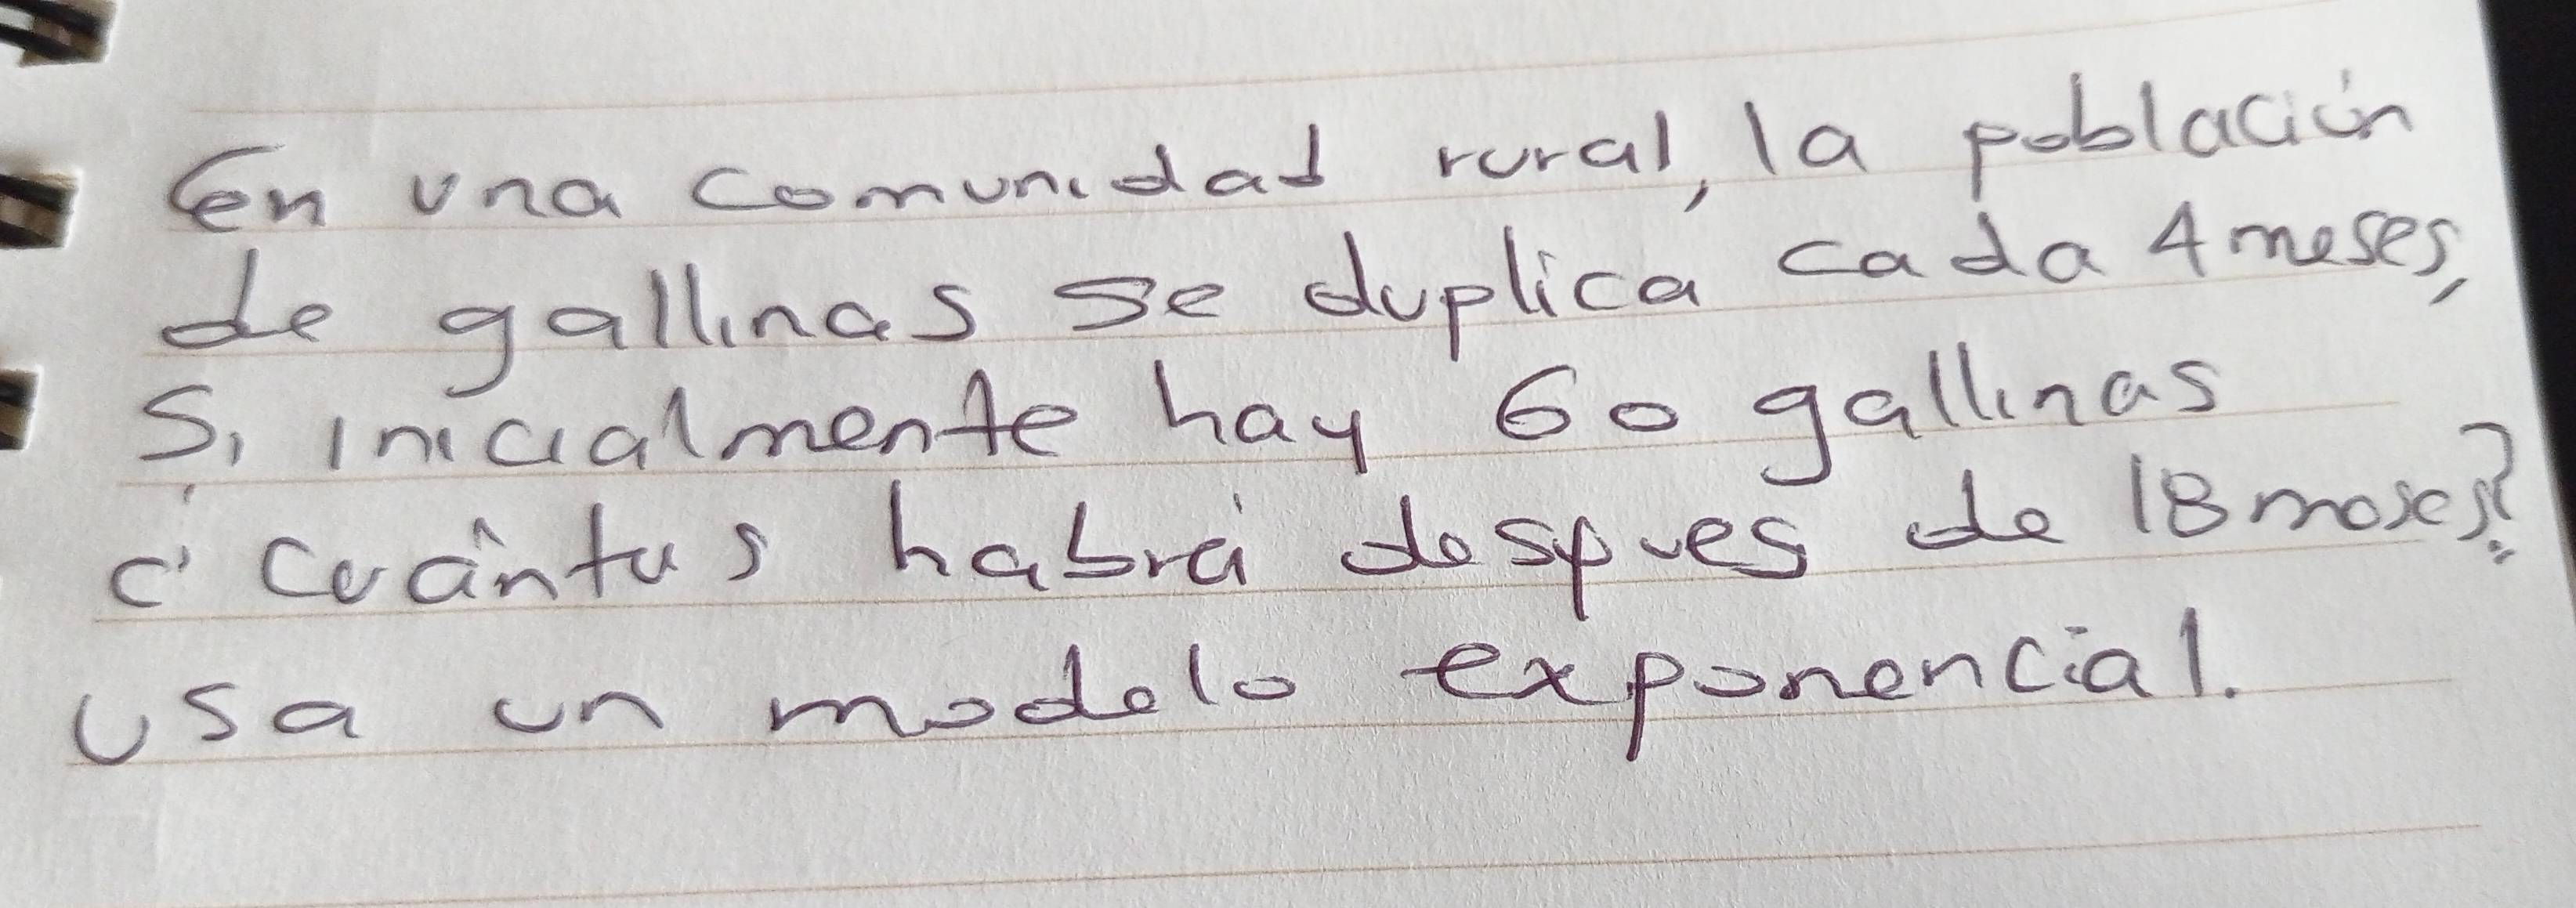 En una comunidad rural, la población
de gallinas se duplica cada 4 meses,
Si inicialmente hay 60 gallinas
¿Cuántas habrá despues de 18 meses?
Usa un modelo exponencial.